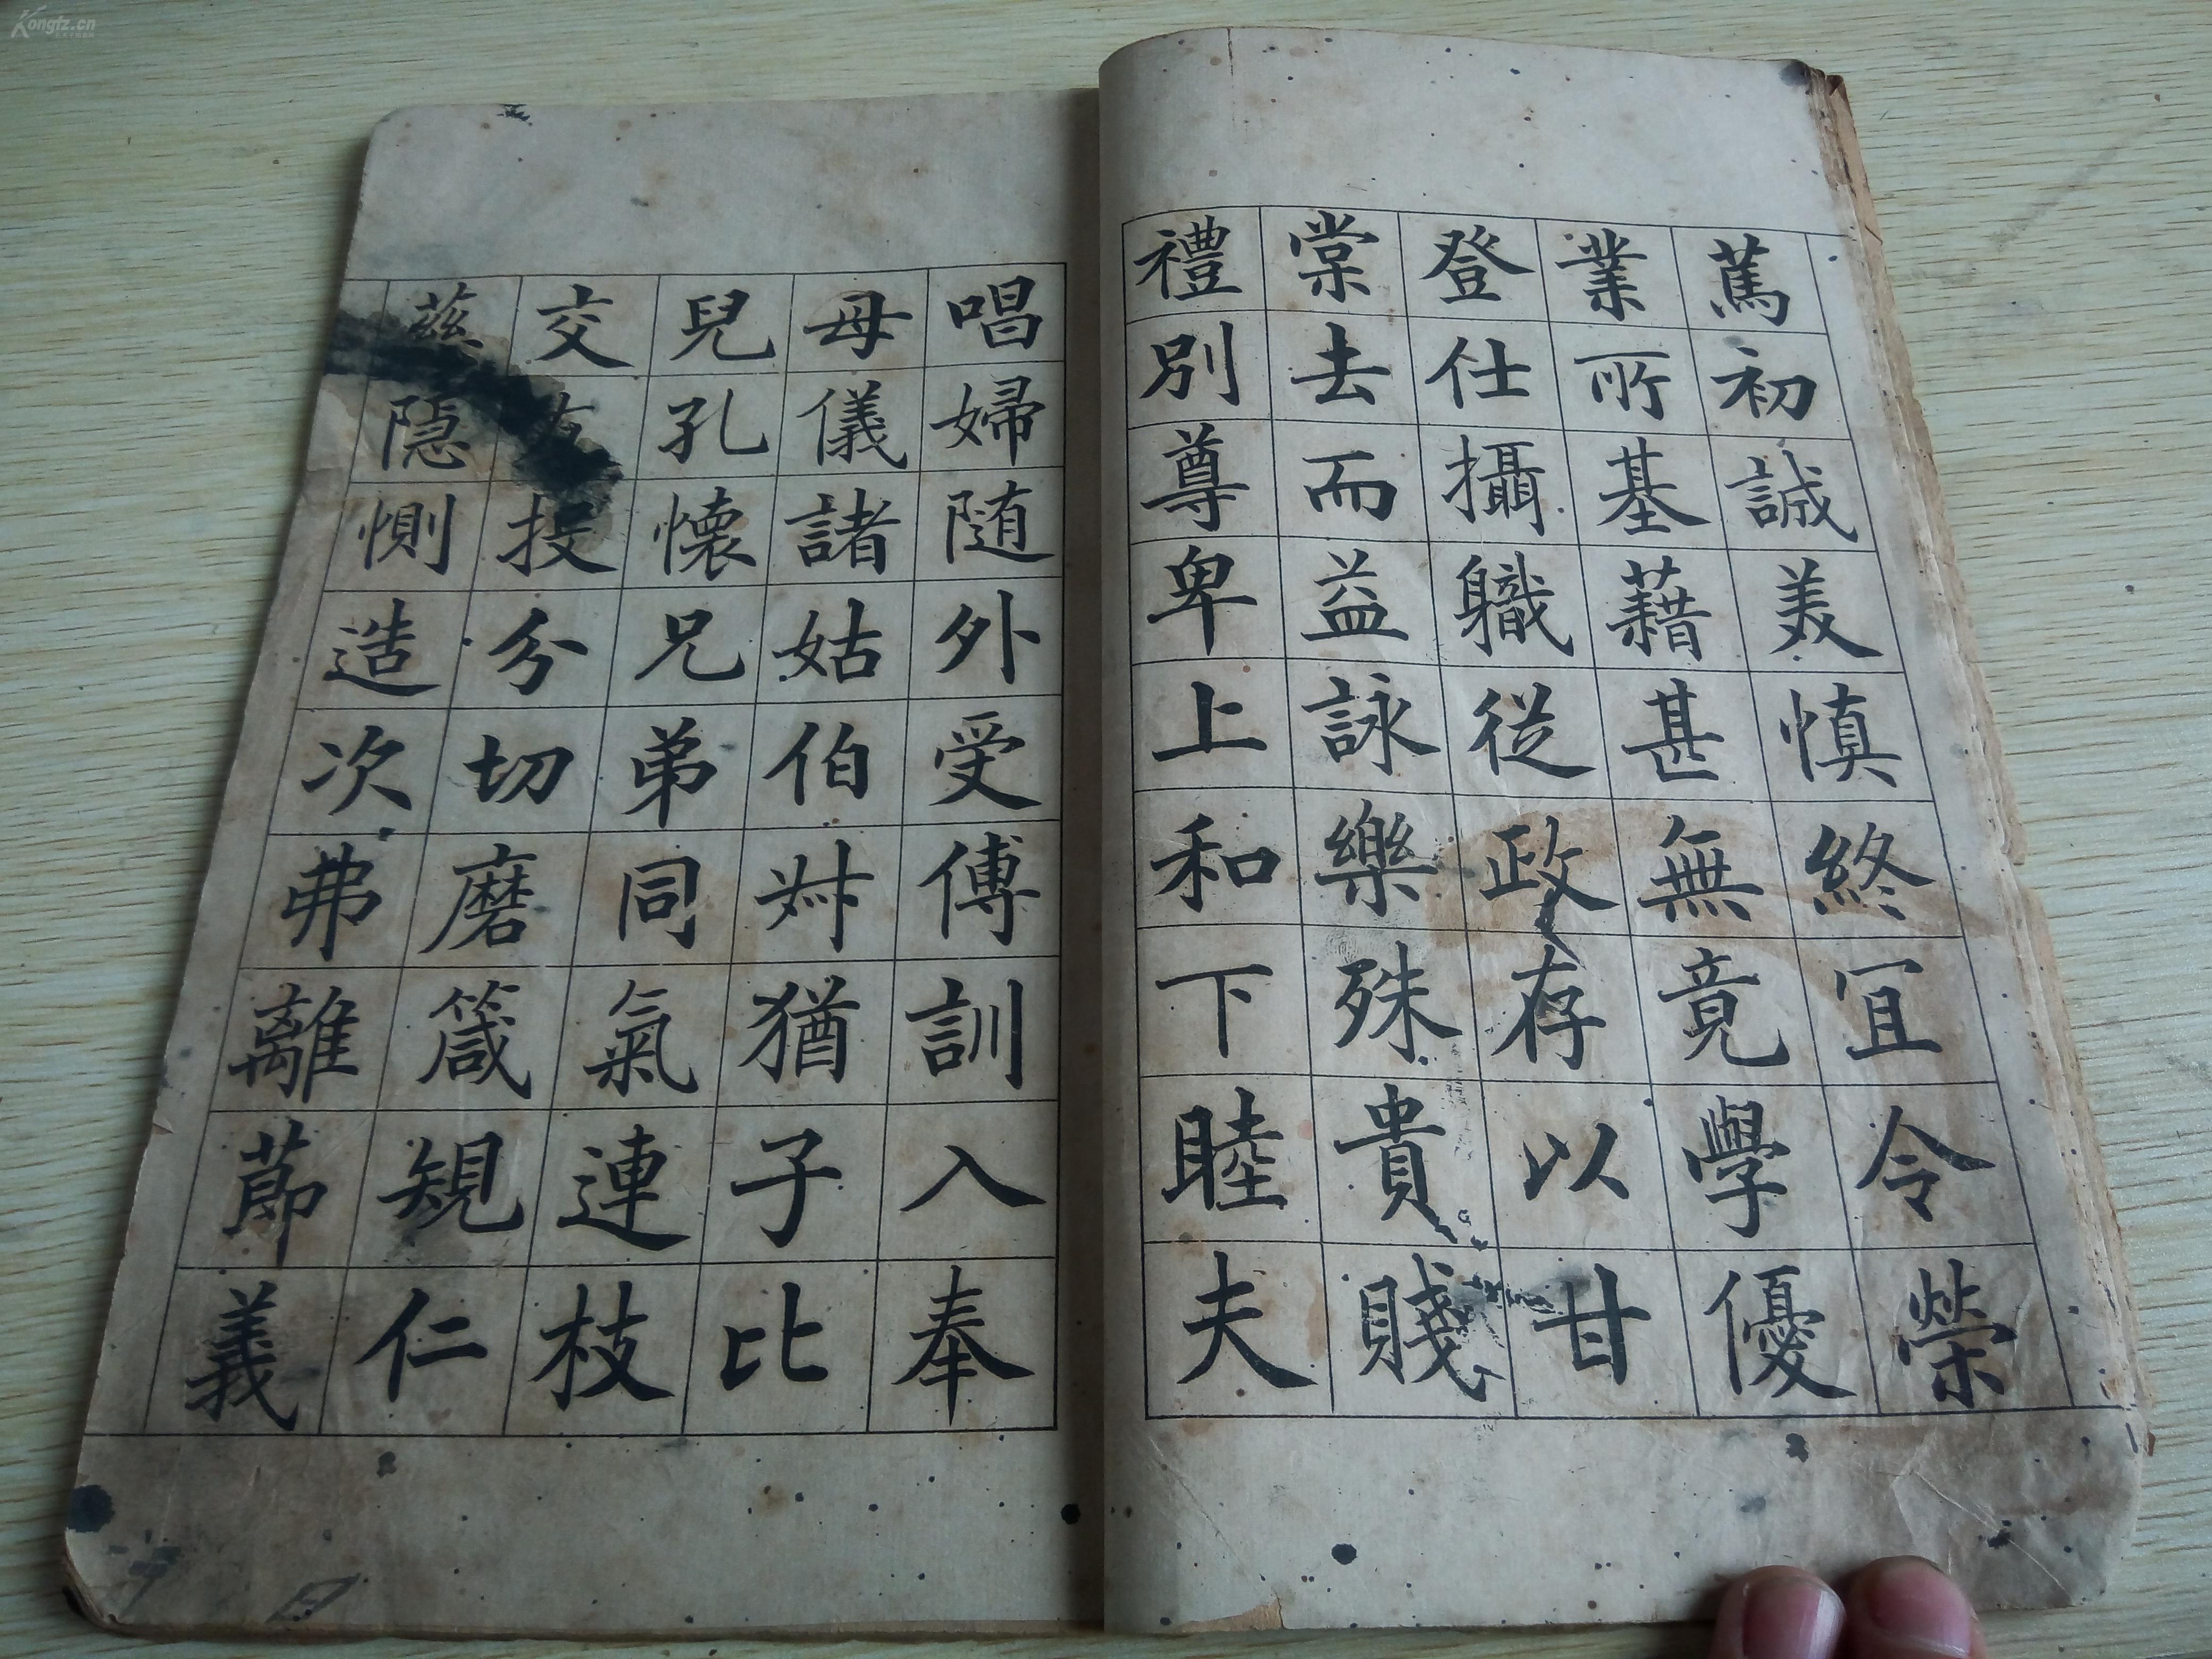 篤初誠美慎終宜令榮
業所基藉甚無竟學優
登仕攝職從政存以甘
棠去而益詠樂殊貴賤
禮別尊卑上和下睦夫
唱婦隨外受傅訓入奉
母儀諸姑伯叔猶子比
兒孔懷兄弟同氣連枝
交友投分切磨箴規仁
慈隱惻造次弗離節義
Kongfz.cn